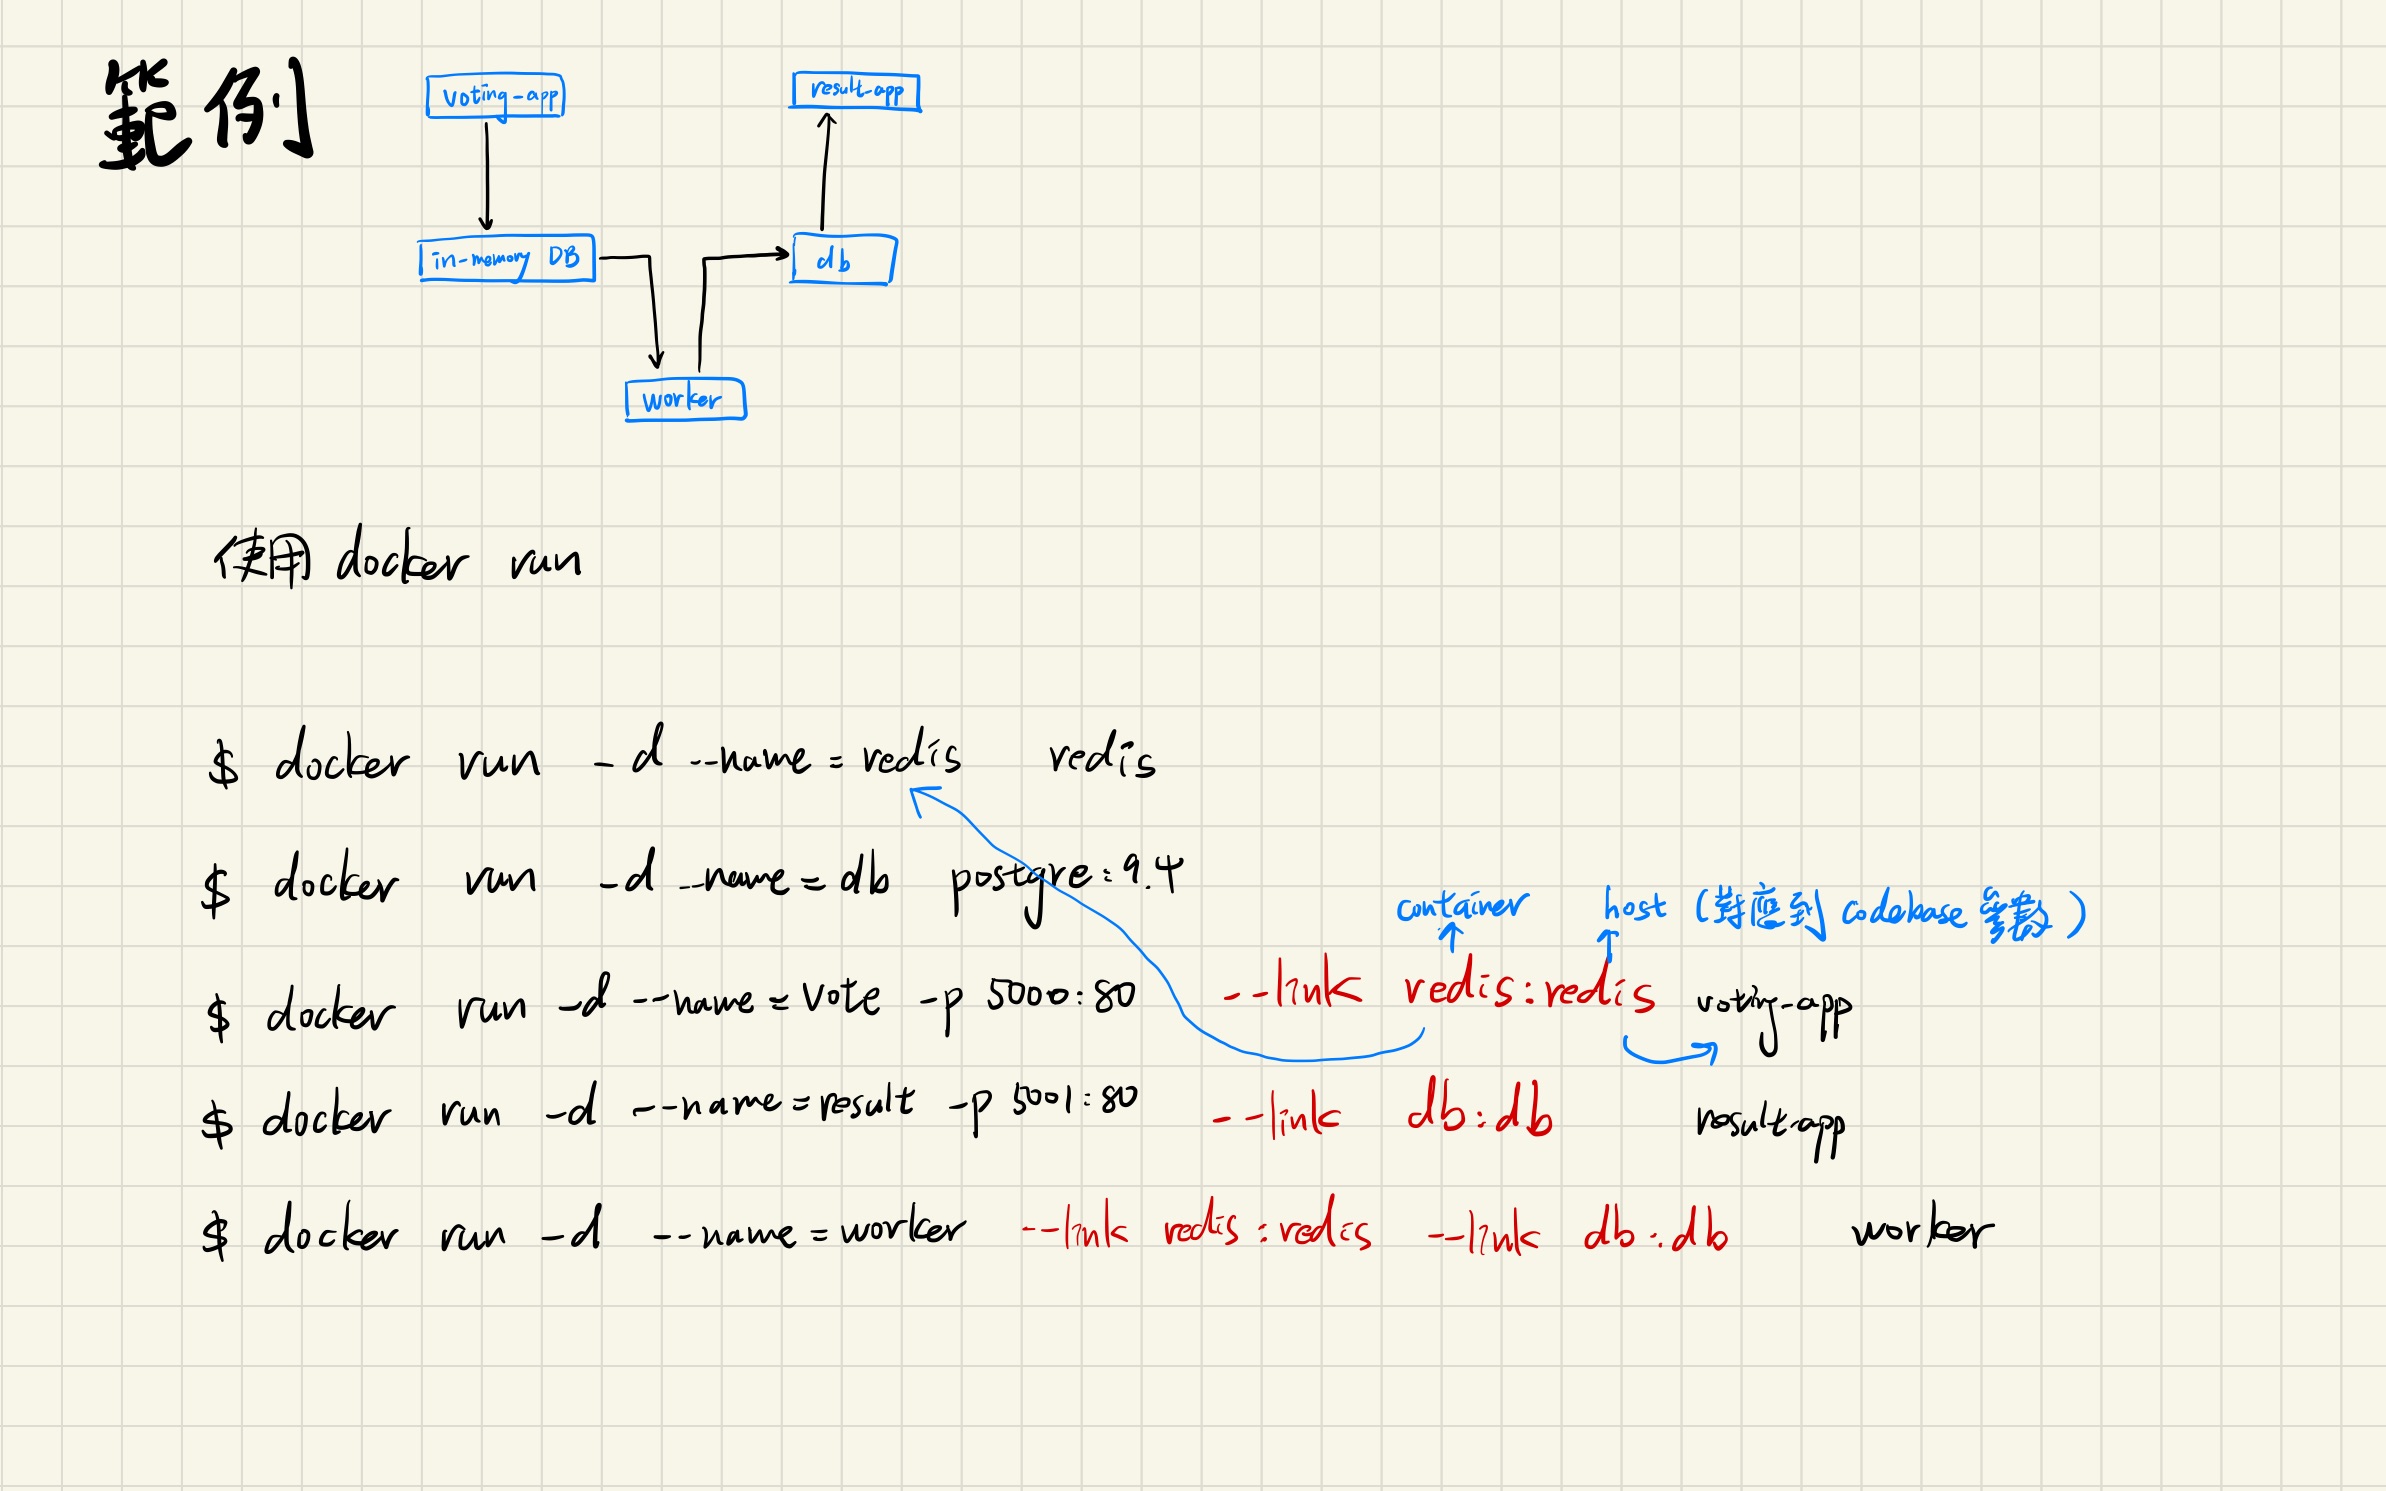 範例
voting-app
result-app
in-memory DB
db
worker
使用 docker run
$ docker run -d --name=redis redis
$ docker run -d --name=db postgre:9.4
container host (對應到 codebase 參數)
$ docker run -d --name=vote -p 5000:80 --link redis:redis voting-app
$ docker run -d --name=result -p 5001:80 --link db:db result-app
$ docker run -d --name=worker --link redis:redis --link db:db worker